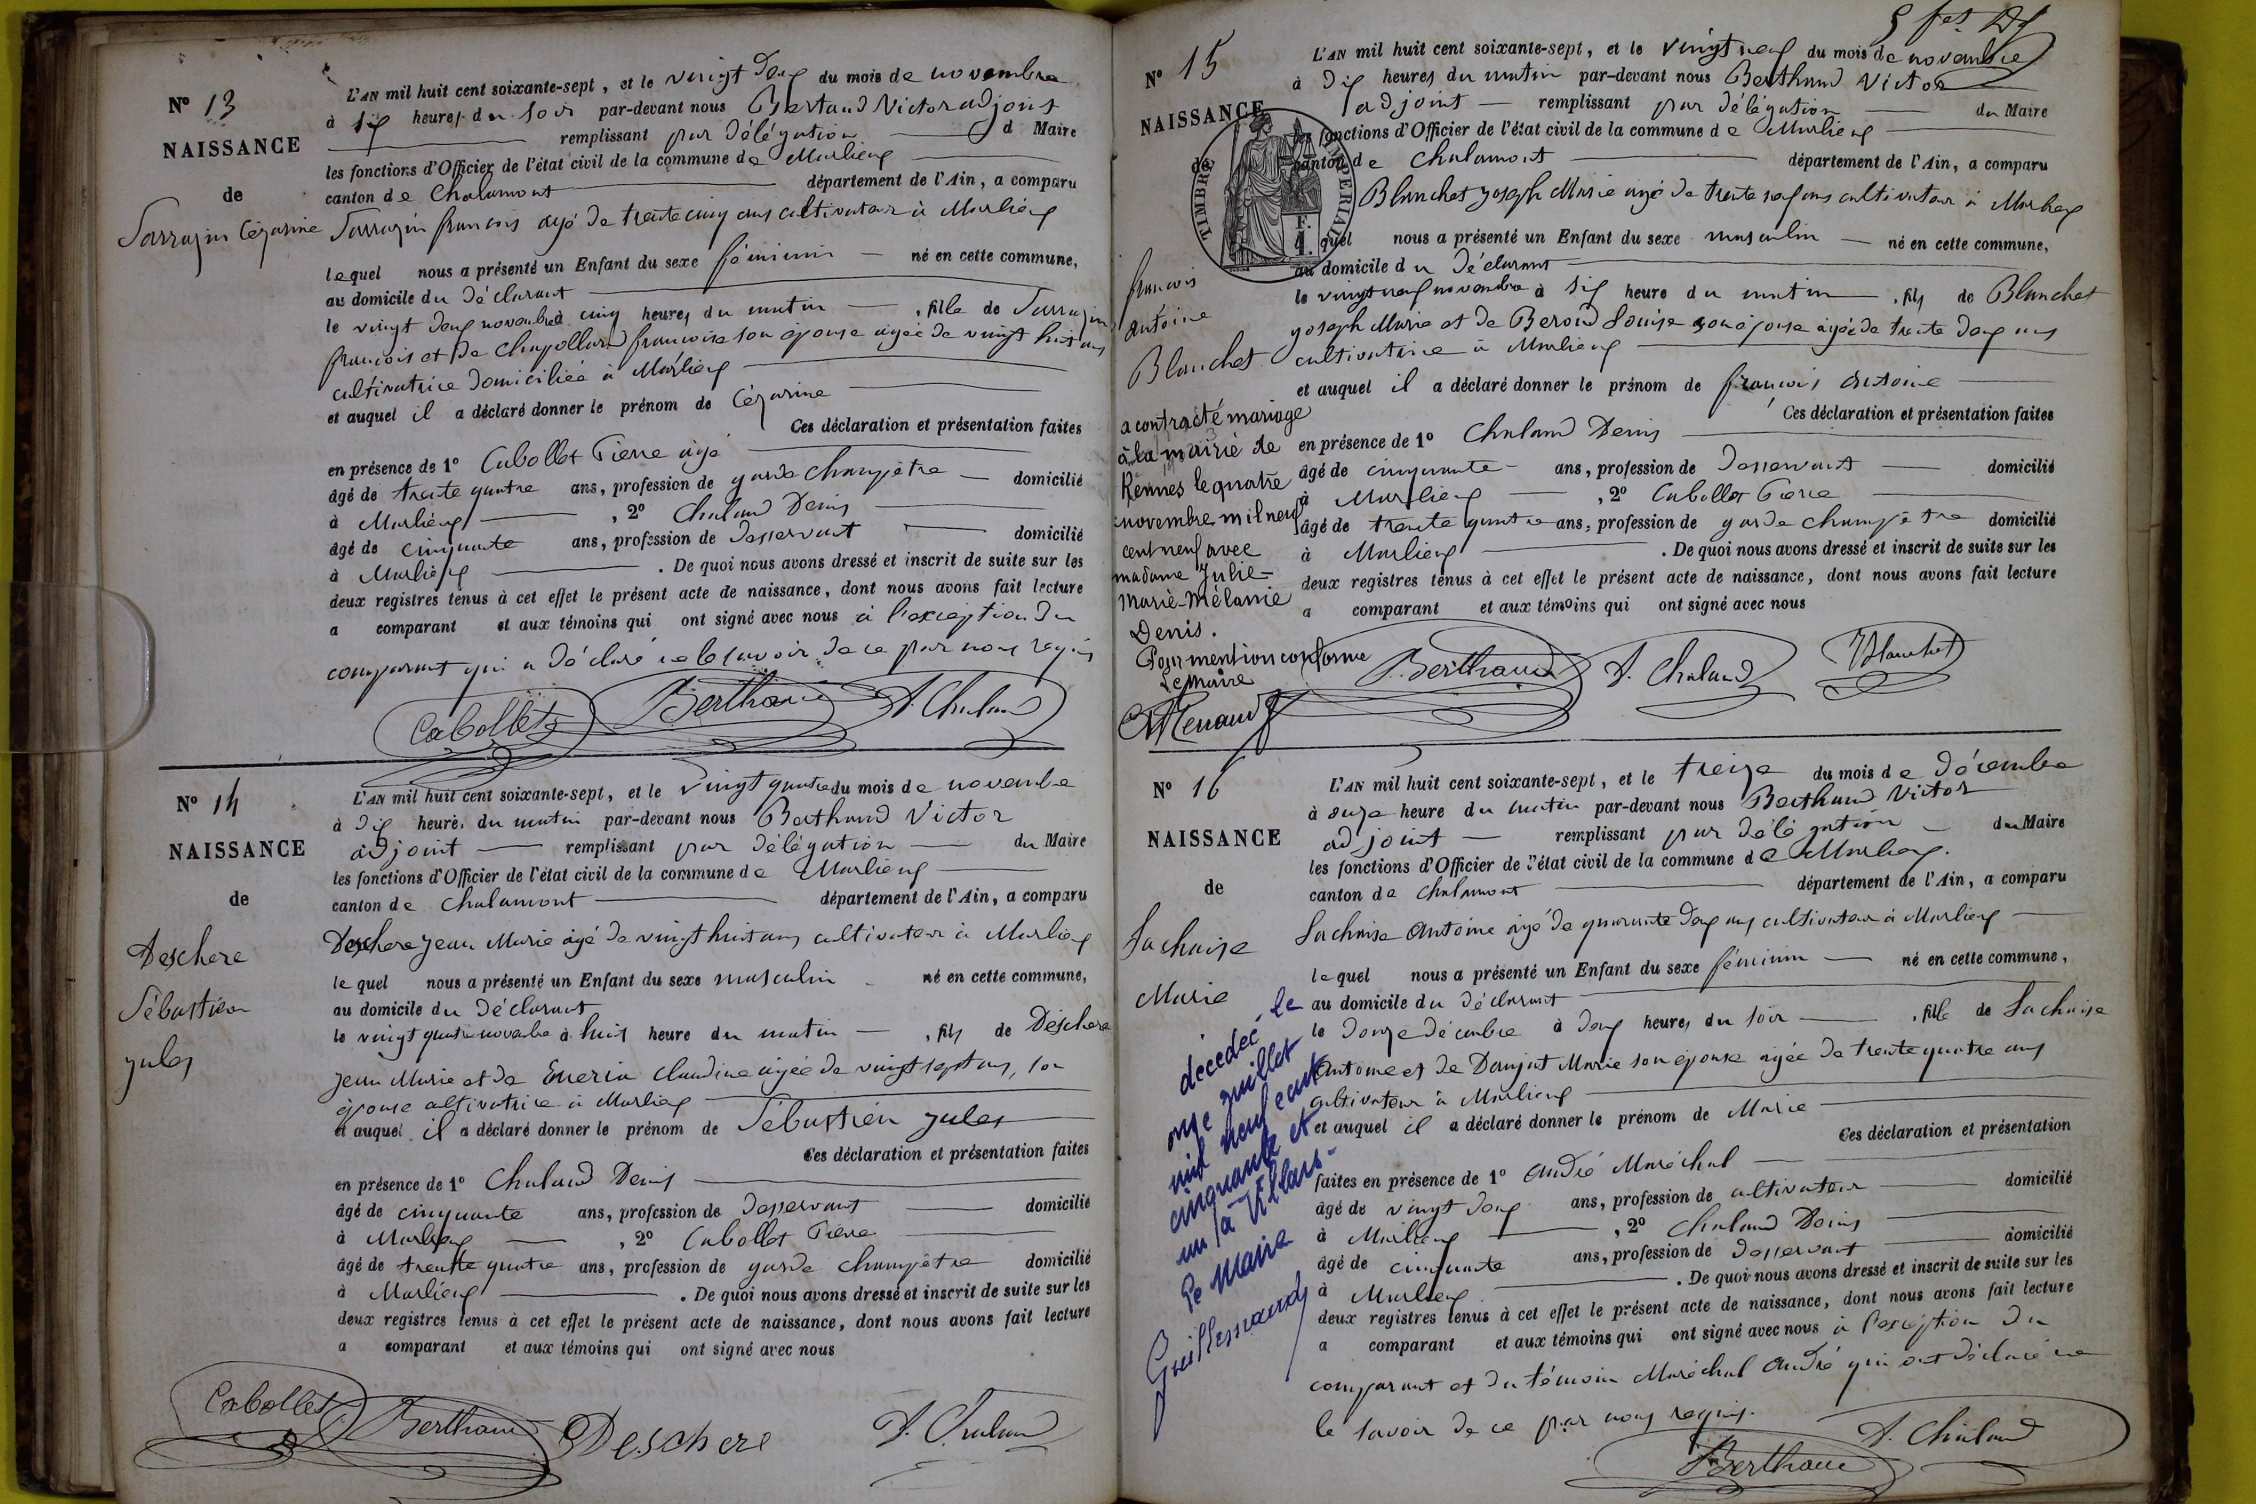 N° 13
NAISSANCE
de
Sarrazin Cézarine
L'AN mil huit cent soixante-sept, et le vingt deux du mois de novembre
à six heures du soir par-devant nous Bertaud Victor adjoint
remplissant par délégation d Maire
les fonctions d'Officier de l'état civil de la commune de Marlieux
canton de Chalamont département de l'Ain, a comparu
Sarrazin francois agé de trente cinq ans cultivateur à Marlieux
lequel nous a présenté un Enfant du sexe féminin né en cette commune,
au domicile du déclarant
le vingt deux novembre à cinq heures du matin , fille de Sarrazin
francois et de Chapolland francoise son épouse agée de vingt huit ans
cultivatrice domiciliée à Marlieux
et auquel il a déclaré donner le prénom de Cézarine
Ces déclaration et présentation faites
en présence de 1° Cabollet Pierre agé
âgé de trente quatre ans, profession de garde champêtre domicilié
à Marlieux , 2° Chaland Denis
âgé de cinquante ans, profession de desservant domicilié
à Marlieux . De quoi nous avons dressé et inscrit de suite sur les
deux registres tenus à cet effet le présent acte de naissance, dont nous avons fait lecture
a comparant et aux témoins qui ont signé avec nous à l'exception du
comparant qui a déclaré ne le savoir de ce par nous requis
Cabollet Berthaud D. Chaland
N° 14
NAISSANCE
de
Deschere
Sébastien
jules
L'AN mil huit cent soixante-sept, et le vingt quatre du mois de novembre
à dix heure, du matin par-devant nous Berthaud Victor
adjoint remplissant par délégation du Maire
les fonctions d'Officier de l'état civil de la commune de Marlieux
canton de Chalamont département de l'Ain, a comparu
Deschere jean Marie agé de vingt huit ans cultivateur à Marlieux
lequel nous a présenté un Enfant du sexe masculin né en cette commune,
au domicile du déclarant
le vingt quatre novembre à huit heure du matin , fils de Deschere
jean Marie et de claudine agée de vingt sept ans, son
épouse cultivatrice à Marlieux
et auquel il a déclaré donner le prénom de Sébastien jules
Ces déclaration et présentation faites
en présence de 1° Chaland Denis
âgé de cinquante ans, profession de desservant domicilié
à Marlieux , 2° Cabollet Pierre
âgé de trentte quatre ans, profession de garde champêtre domicilié
à Marlieux . De quoi nous avons dressé et inscrit de suite sur les
deux registres tenus à cet effet le présent acte de naissance, dont nous avons fait lecture
a comparant et aux témoins qui ont signé avec nous
Cabollet Berthaud Deschere D. Chaland
N° 15
NAISSANCE
de
TIMBRE IMPERIAL
F.
1.
francois
antoine
Blanchet
a contracté mariage
à la mairie de
Rennes le quatre
novembre mil neuf
cent neuf avec
madame Julie-
Marie-Mélanie
Denis.
Pour mention conforme
Le Maire
L'AN mil huit cent soixante-sept, et le vingt neuf du mois de novembre
à dix heures du matin par-devant nous Berthaud Victor
adjoint remplissant par délégation du Maire
les fonctions d'Officier de l'état civil de la commune de Marlieux
canton de Chalamont département de l'Ain, a comparu
Blanchet joseph Marie agé de trente sept ans cultivateur à Marlieux
lequel nous a présenté un Enfant du sexe masculin né en cette commune,
au domicile du déclarant
le vingt neuf novembre à six heure du matin , fils de Blanchet
joseph Marie et de Beroud Louise son épouse agée de trente deux ans
cultivatrice à Marlieux
et auquel il a déclaré donner le prénom de francois antoine
Ces déclaration et présentation faites
en présence de 1° Chaland Denis
âgé de cinquante ans, profession de desservant domicilié
à Marlieux , 2° Cabollet Pierre
âgé de trente quatre ans, profession de garde champêtre domicilié
à Marlieux . De quoi nous avons dressé et inscrit de suite sur les
deux registres tenus à cet effet le présent acte de naissance, dont nous avons fait lecture
a comparant et aux témoins qui ont signé avec nous
Berthaud D. Chaland Blanchet
N° 16
NAISSANCE
de
Lachaise
Marie
décédée le
onze juillet
mil neuf cent
cinquante et
un à Villars-
Le Maire
Guillemaud
L'AN mil huit cent soixante-sept, et le treize du mois de décembre
à onze heure du matin par-devant nous Berthaud Victor
adjoint remplissant par délégation du Maire
les fonctions d'Officier de l'état civil de la commune de Marlieux.
canton de Chalamont département de l'Ain, a comparu
Lachaise Antoine agé de quarante deux ans cultivateur à Marlieux
lequel nous a présenté un Enfant du sexe féminin né en cette commune,
au domicile du déclarant
le douze décembre à deux heures du soir , fille de Lachaise
Antoine et de Danjat Marie son épouse agée de trente quatre ans
cultivateur à Marlieux
et auquel il a déclaré donner le prénom de Marie
Ces déclaration et présentation
faites en présence de 1° André Maréchal
âgé de vingt deux ans, profession de cultivateur domicilié
à Marlieux , 2° Chaland Denis
âgé de cinquante ans, profession de desservant domicilié
à Marlieux . De quoi nous avons dressé et inscrit de suite sur les
deux registres tenus à cet effet le présent acte de naissance, dont nous avons fait lecture
a comparant et aux témoins qui ont signé avec nous à l'exception du
comparant et du témoin Maréchal André qui ont déclaré ne
le savoir de ce par nous requis.
Berthaud D. Chaland